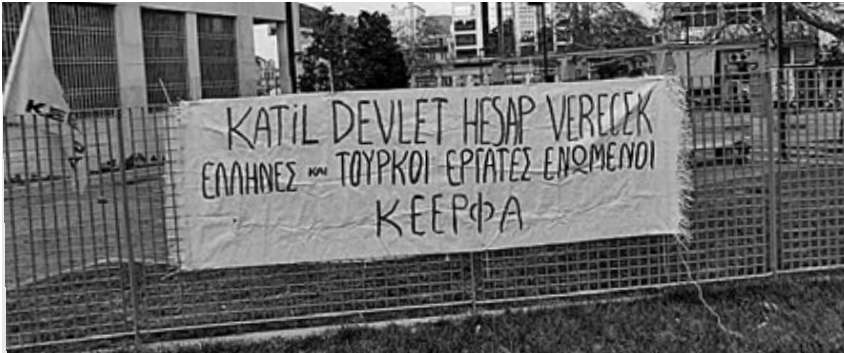 KATiL DEVLET HESAP VERECEK
ΕΛΛΗΝΕΣ ΚΑΙ ΤΟΥΡΚΟΙ ΕΡΓΑΤΕΣ ΕΝΩΜΕΝΟΙ
ΚΕΕΡΦΑ